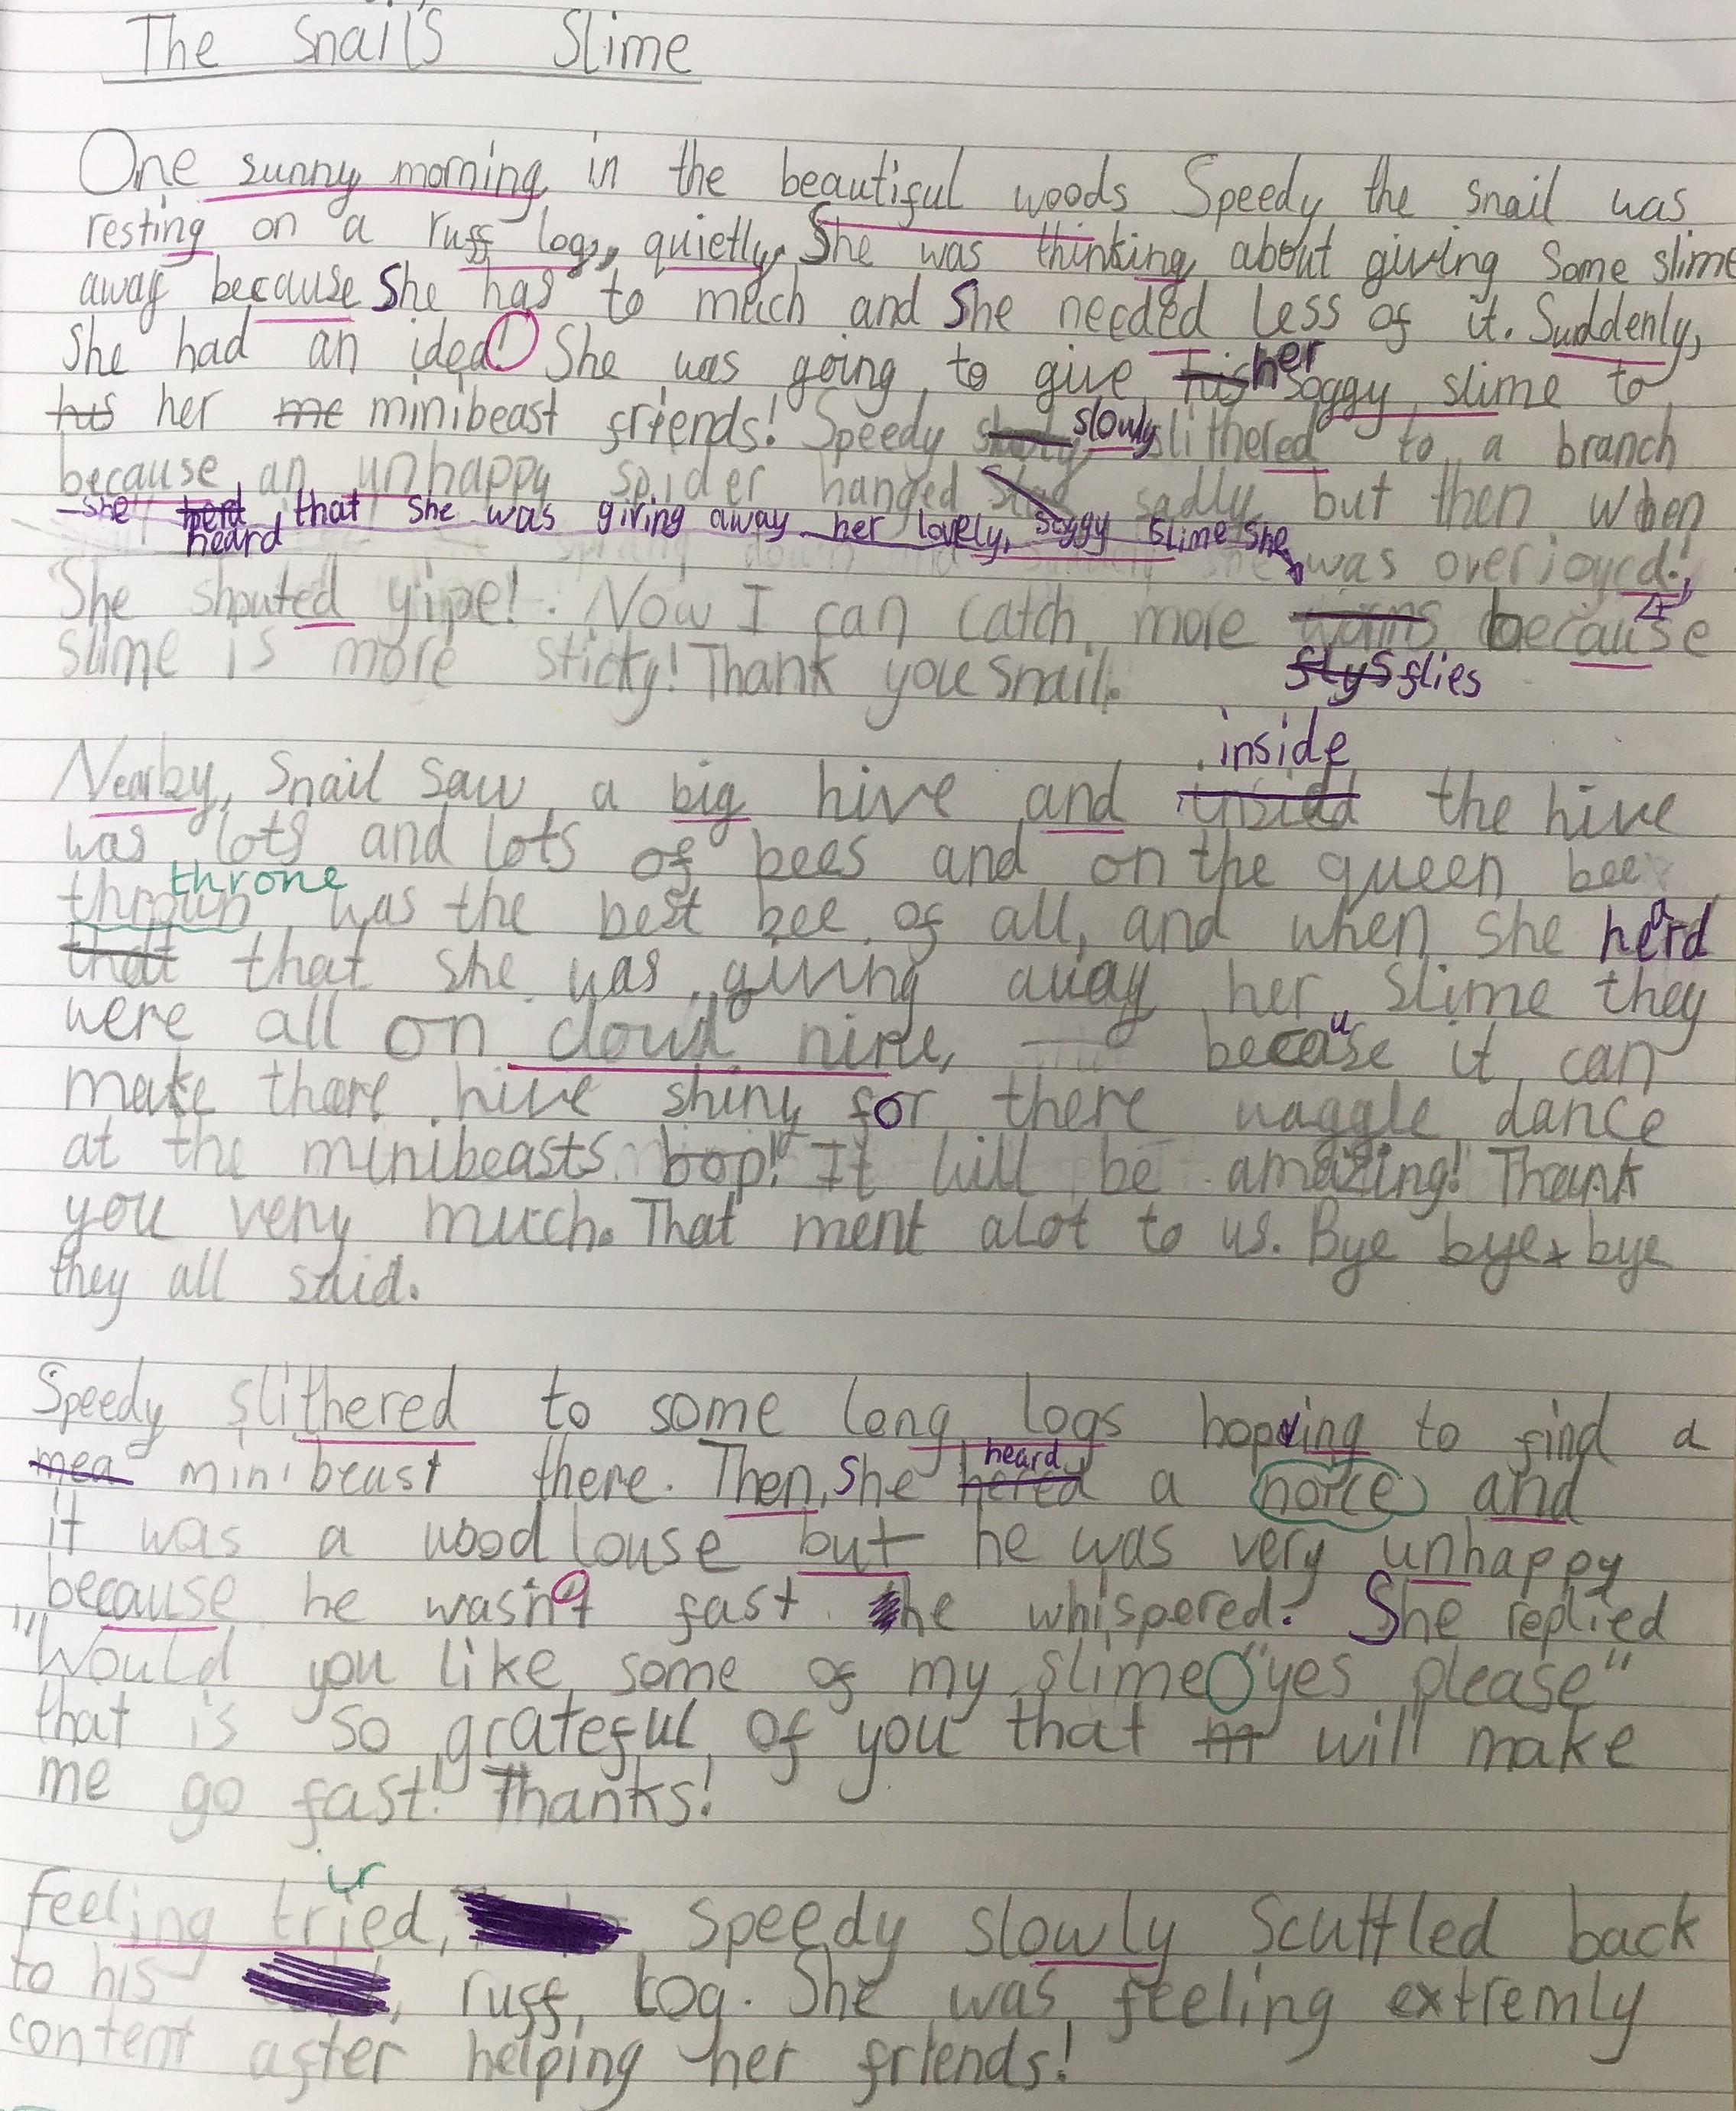 The Snail's Slime
One sunny morning in the beautiful woods Speedy the snail was
resting on a ruff log, quietly. She was thinking about giving some slime
away because She has to much and She needed less of it. Suddenly,
She had an idea! She was going to give his her soggy slime to
his her me minibeast friends! Speedy slowly slithered to a branch
because an unhappy spider hanged sadly but then when
she herd heard that she was giving away her lovely, soggy slime she
was overjoyed!
She shouted yipe! Now I can catch more worms because
flys flies
slime is more sticky! Thank you snail.
inside
Nearby, Snail saw a big hive and insidd the hive
was lots and lots of bees and on the queen bee
throne
thrown was the best bee of all, and when she heard
that that she was giving away her slime they
were all on cloud nine, because it can
make there hive shiny for there waggle dance
at the minibeasts bop! It will be amazing! Thank
you very much. That ment alot to us. Bye bye bye
they all said.
Speedy slithered to some long logs hopping to find a
mea minibeast there. Then, She hered heard a noice and
it was a wood louse but he was very unhappy
because he wasn't fast he whispered. She replied
"Would you like some of my slime "yes please"
that is so grateful of you that m will make
me go fast! Thanks!
ir
Feeling tried, Speedy slowly Scuttled back
to his , ruff, log. She was feeling extremly
content after helping her friends!